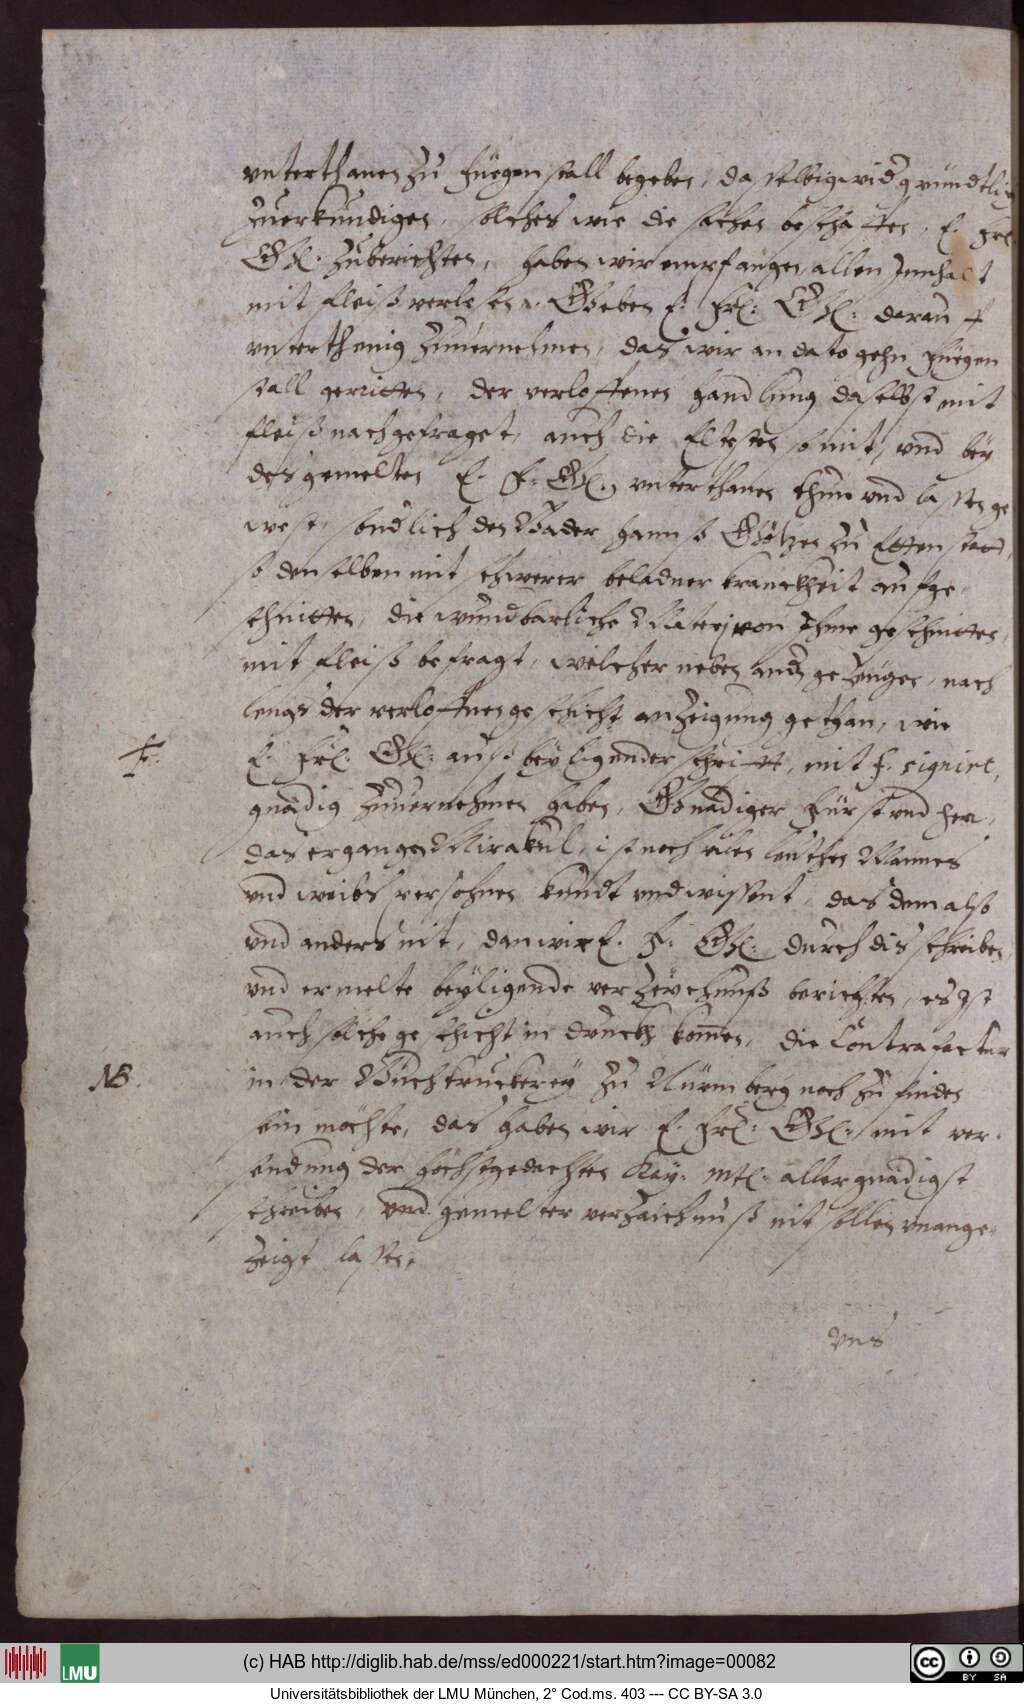 vnterthanen zu Füegenstall begeben, dasselbig widr gründtlich
zuerkündigen, solches wie die sachen beschaffen, E. Frl:
Gn. zuberichten, haben wir empfangen, allen Jnnhalt
mit fleiß verlesen. Geben E. Frl: Gn: darauff
vnterthenig zuuernehmen, das wir an dato gehn Füegen
stall geritten, der verloffenen handlung daselbst mit
fleiß nachgefraget, auch die Eltesten so mit, vnd bey
des gemelten E. F. Gn. vnterthanen thun vnd lassen ge
west, sondlich den Bader Hannß Götzen zu Ettenstatt,
so denselben mit schwerer beladner kranckheit aufge-
schnitten, die wundbarliche Materj von Jhme geschnitten,
mit fleiß befragt, welcher neben andn gezeügen, nach
lengs der verloffnen geschicht anzeigung gethan, wie
F. E. Frl: Gn: auß beyligender schrifft, mit F. signirt,
gnädig zuuernehmen haben, Gnädiger Fürst vnd herr,
das ergangen Mirakul, ist noch vilen leuthen Mannes
vnd weibs persohnen kundt vnd wissent, das dem also
vnd anders nit, dan wir E. F. Gn: durch dis schreiben,
vnd ermelte beyligende verzeychnuß berichten, es ist
auch solche geschicht in druckh kommen, die Contrafactur
NB. in der Buchtruckerey zu Nürmberg noch zu finden
sein möchte, das haben wir E. Frl: Gn: mit ver-
sendung der höchstgedachten Kay: Mtl: allergnädigst
schreiben, vnd gemelter verzaichnuß nit sollen vnange-
zeigt lassen,
vns
(c) HAB http://diglib.hab.de/mss/ed000221/start.htm?image=00082
LMU
cc BY SA
Universitätsbibliothek der LMU München, 2° Cod.ms. 403 --- CC BY-SA 3.0